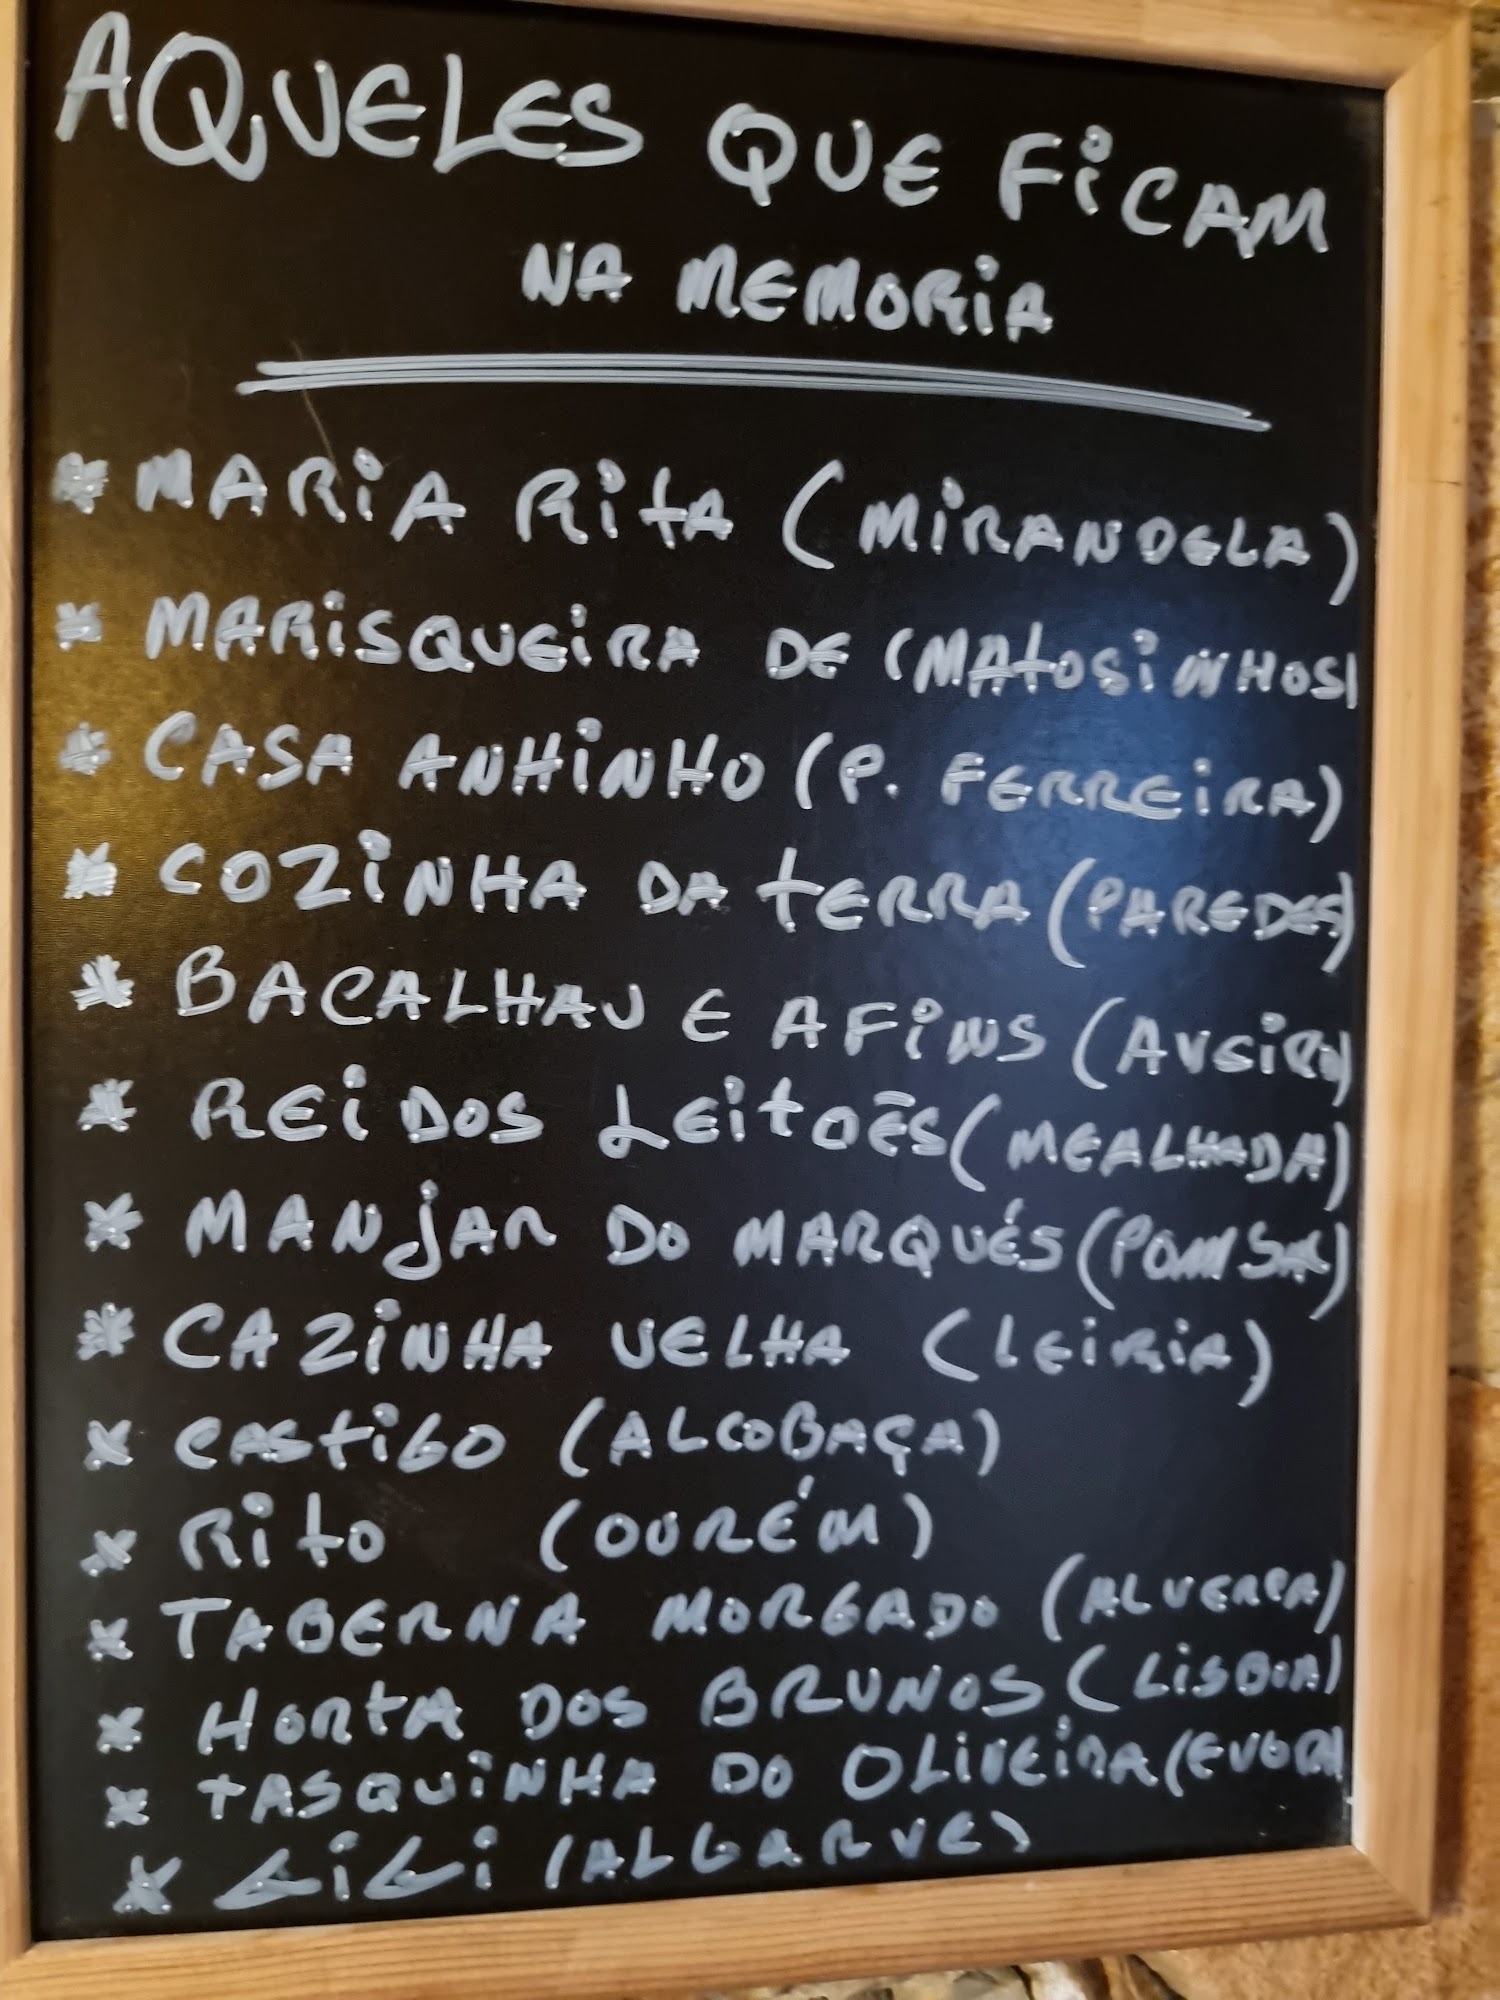 AQUELES QUE FICAM
NA MEMORIA
* MARIA RITA (MIRANDELA)
* MARISQUEIRA DE (MATOSINHOS)
* CASA ANHINHO (P. FERREIRA)
* COZINHA DA TERRA (PAREDES)
* BACALHAU E AFINS (AVEIRO)
* REI DOS LEITOES (MEALHADA)
* MANJAR DO MARQUÉS
* CAZINHA VELHA (LEIRIA)
* CASTIGO (ALCOBAÇA)
* RITO (OURÉM)
* TABERNA MORGADO (ALVERCA)
* HORTA DOS BRUNOS (LISBOA)
* TASQUINHA DO OLIVEIRA (EVORA)
* GIGI (ALGARVE)